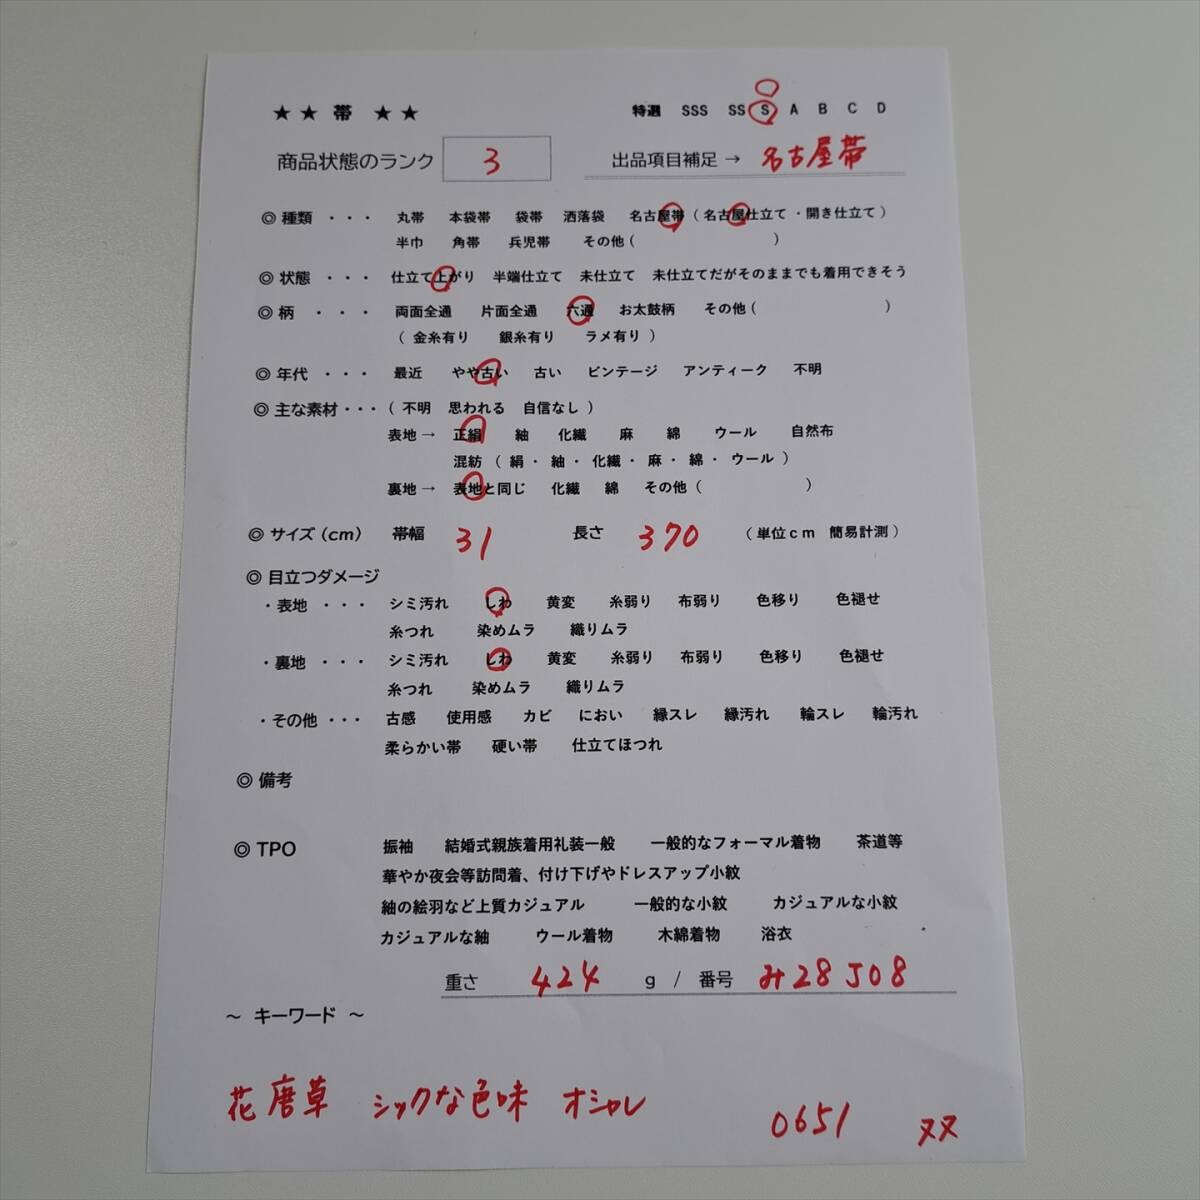 ★ ★ 帯 ★ ★
特選 SSS SS S A B C D
商品状態のランク 3 出品項目補足 → 名古屋帯
◎ 種類 ・・・ 丸帯 本袋帯 袋帯 洒落袋 名古屋帯 ( 名古屋仕立て ・開き仕立て )
半巾 角帯 兵児帯 その他 ( )
◎ 状態 ・・・ 仕立て上がり 半端仕立て 未仕立て 未仕立てだがそのままでも着用できそう
◎ 柄 ・・・ 両面全通 片面全通 六通 お太鼓柄 その他 ( )
( 金糸有り 銀糸有り ラメ有り )
◎ 年代 ・・・ 最近 やや古い 古い ビンテージ アンティーク 不明
◎ 主な素材・・・ ( 不明 思われる 自信なし )
表地 → 正絹 紬 化繊 麻 綿 ウール 自然布
混紡 ( 絹・ 紬・ 化繊・ 麻・ 綿・ ウール )
裏地 → 表地と同じ 化繊 綿 その他 ( )
◎ サイズ (cm) 帯幅 31 長さ 370 (単位cm 簡易計測)
◎ 目立つダメージ
・表地 ・・・ シミ汚れ しわ 黄変 糸弱り 布弱り 色移り 色褪せ
糸つれ 染めムラ 織りムラ
・裏地 ・・・ シミ汚れ しわ 黄変 糸弱り 布弱り 色移り 色褪せ
糸つれ 染めムラ 織りムラ
・その他 ・・・ 古感 使用感 カビ におい 縁スレ 縁汚れ 輪スレ 輪汚れ
柔らかい帯 硬い帯 仕立てほつれ
◎ 備考
◎ TPO 振袖 結婚式親族着用礼装一般 一般的なフォーマル着物 茶道等
華やか夜会等訪問着、付け下げやドレスアップ小紋
紬の絵羽など上質カジュアル 一般的な小紋 カジュアルな小紋
カジュアルな紬 ウール着物 木綿着物 浴衣
重さ 424 g / 番号 み28J08
～ キーワード ～
花唐草 シックな色味 オシャレ
0651 ヌヌ